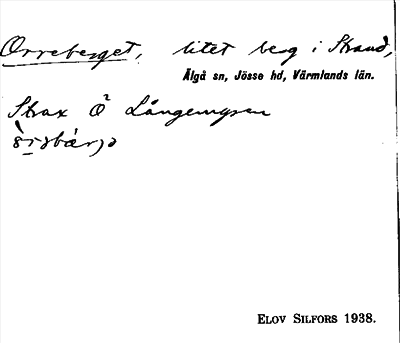 Orreberget, litet berg i Strand,
Älgå sn, Jösse hd, Värmlands län.
Strax Ö Långemyren
ELOV SILFORS 1938.